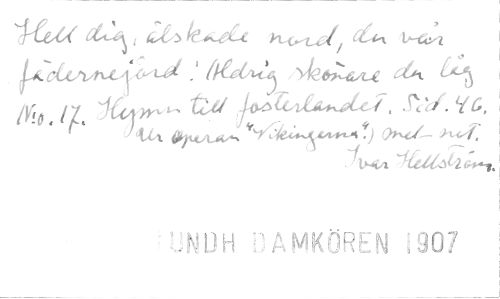 Hell dig, älskade nord, du vår
fädernejord! Aldrig skönare du låg
N:o. 17. Hymn till fosterlandet. Sid. 46.
Ur operan "Vikingarna".) met not.
Ivar Hellström.
UNDH DAMKÖREN 1907